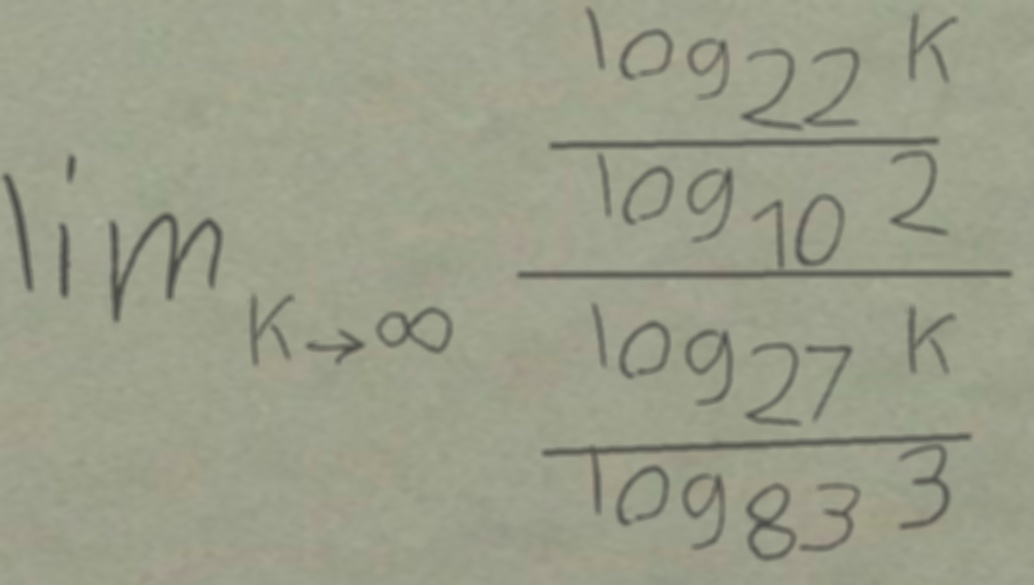 \lim_{K \to \infty} \frac{\frac{\log_{22} K}{\log_{10} 2}}{\frac{\log_{27} K}{\log_{83} 3}}